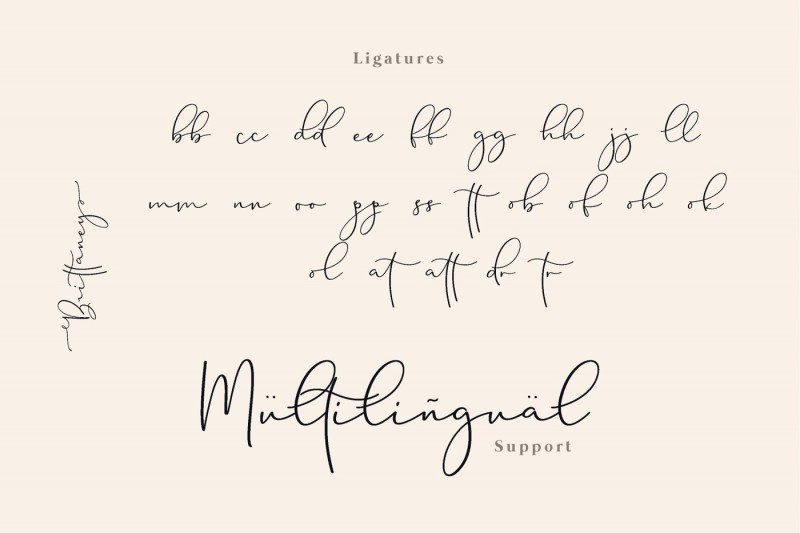 Ligatures
bb cc dd ee ff gg hh jj ll
mm nn oo pp ss tt ob of oh ok
ol at att dr tr
Brittaneys
Mültilingual
Support